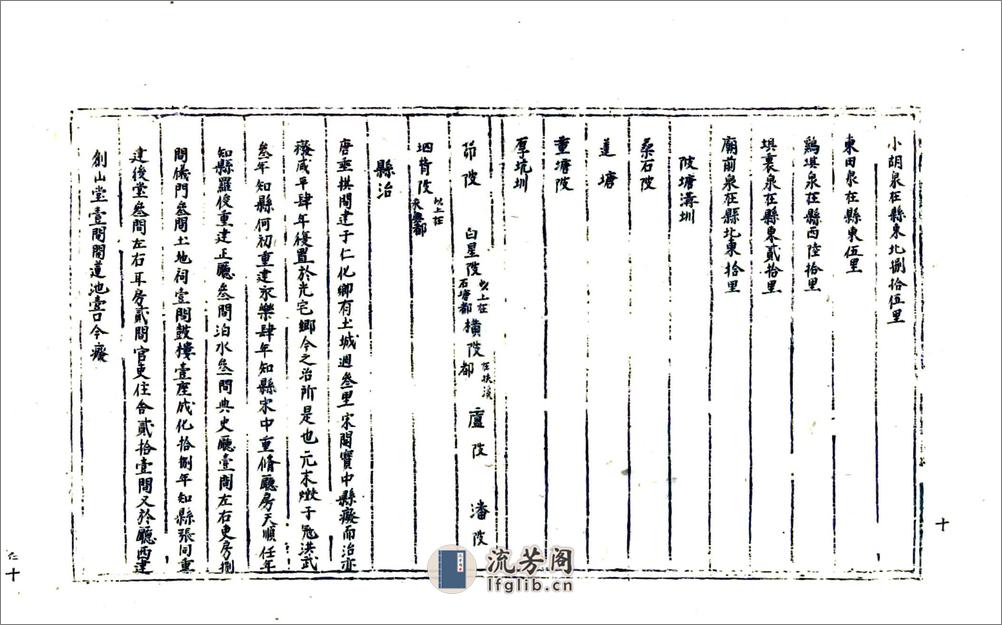 小胡泉在縣東北捌拾伍里
東田泉在縣東伍里
鷄湖泉在縣西陸拾里
埧裏泉在縣東貳拾里
廟前泉在縣北東拾里
陂塘溝圳
桑石陂
蓮塘
重塘陂
厚坑圳
茆陂 白星陂以上在石塘都橫陂在扶溪都 盧陂 潘陂
堌背陂以上在永樂都
縣治
唐垂拱間建于仁化鄉有土城週叁里宋開寶中縣癈而治亦
癈咸平肆年復置於光宅鄉今之治所是也元末燬于兵洪武
叁年知縣何初重建永樂肆年知縣宋中重脩廳房天順任年
知縣羅俊重建正廳叁間泊水叁間典史廳壹間左右吏房捌
間儀門叁間土地祠壹間鼓樓壹座成化拾捌年知縣張冋重
建後堂叁間左右耳房貳間官吏住舍貳拾壹間又於廳西建
創山堂壹間開蓮池壹口今癈
十
仁十
流芳阁
lfglib.cn